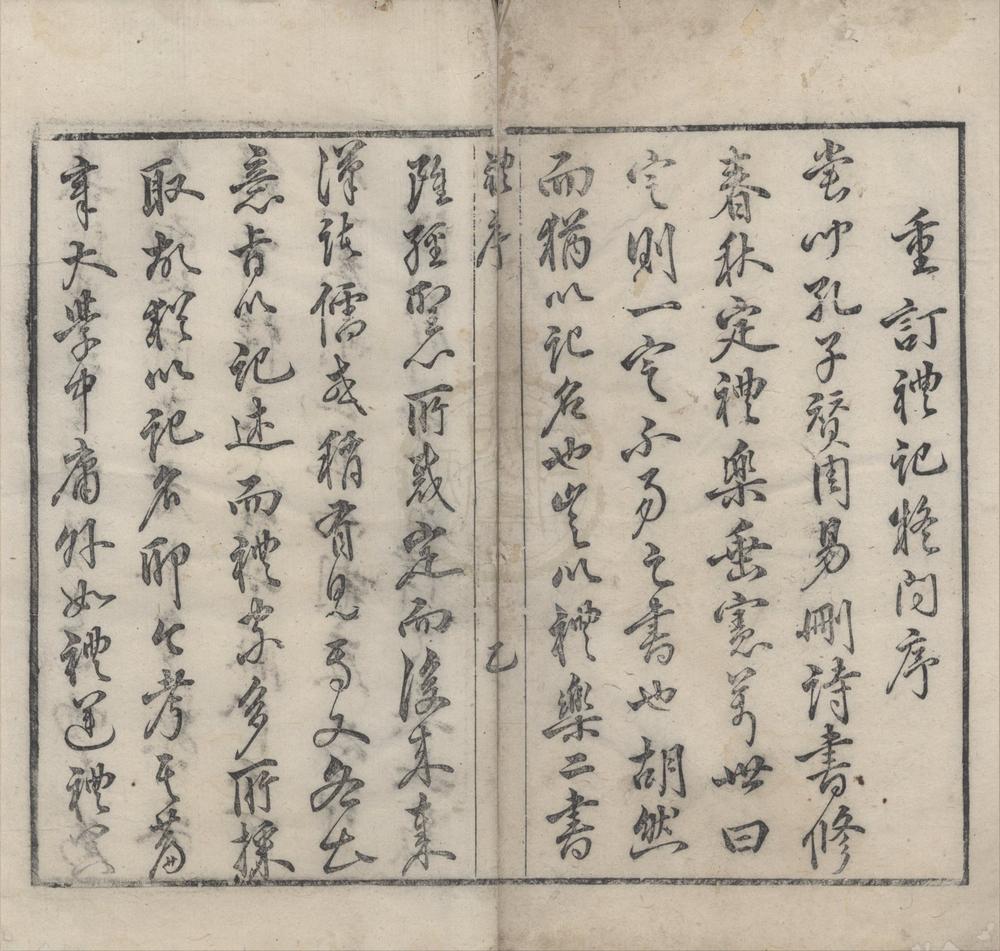 重訂禮記疑問序
嘗聞孔子贊周易刪詩書修
春秋定禮樂垂憲萬世曰
定則一定不易之書也胡然
而猶以記名也豈以禮樂二書
禮序
乙
雖經聖心所裁定而後來秉
漢諸儒或稍有見焉又各出
意旨以記述而禮家多所採
取故猶以記名耶今考其篇
章大學中庸外如禮運禮